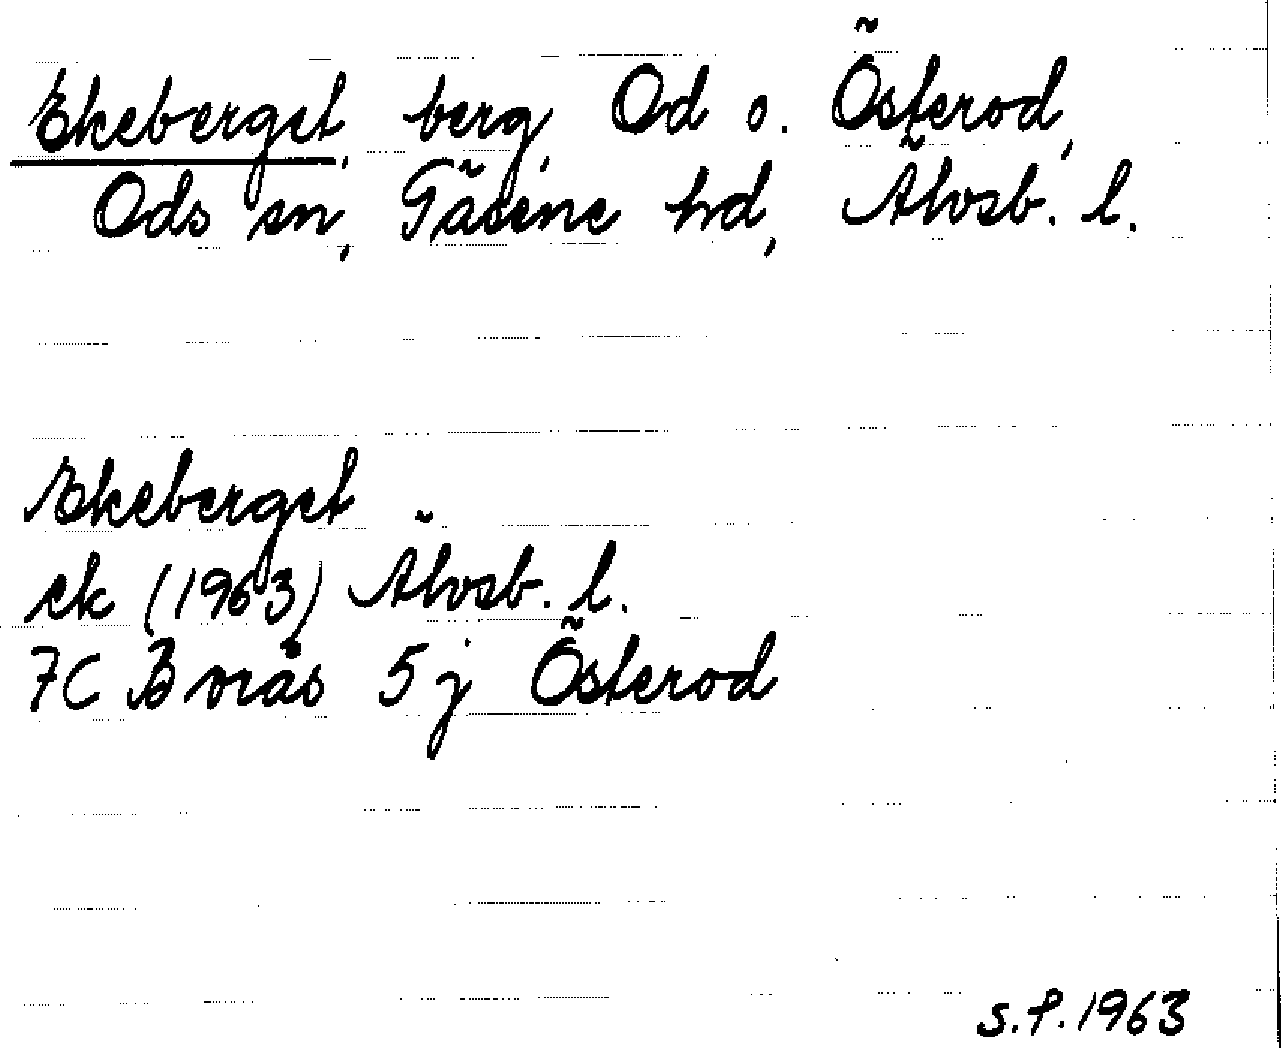 Ekeberget, berg, Od o. Österod,
Ods sn, Gäsene hd, Älvsb. l.
Ekeberget
ek (1963) Älvsb. l.
7C Borås 5j Österod
S.F. 1963